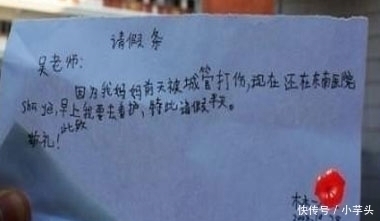 请假条
吴老师:
因为我妈妈前天被城管打伤,现在还在东南医院
shu ye,早上我要去看护,特此请假半天。
此致
敬礼!
快传号/小芋头